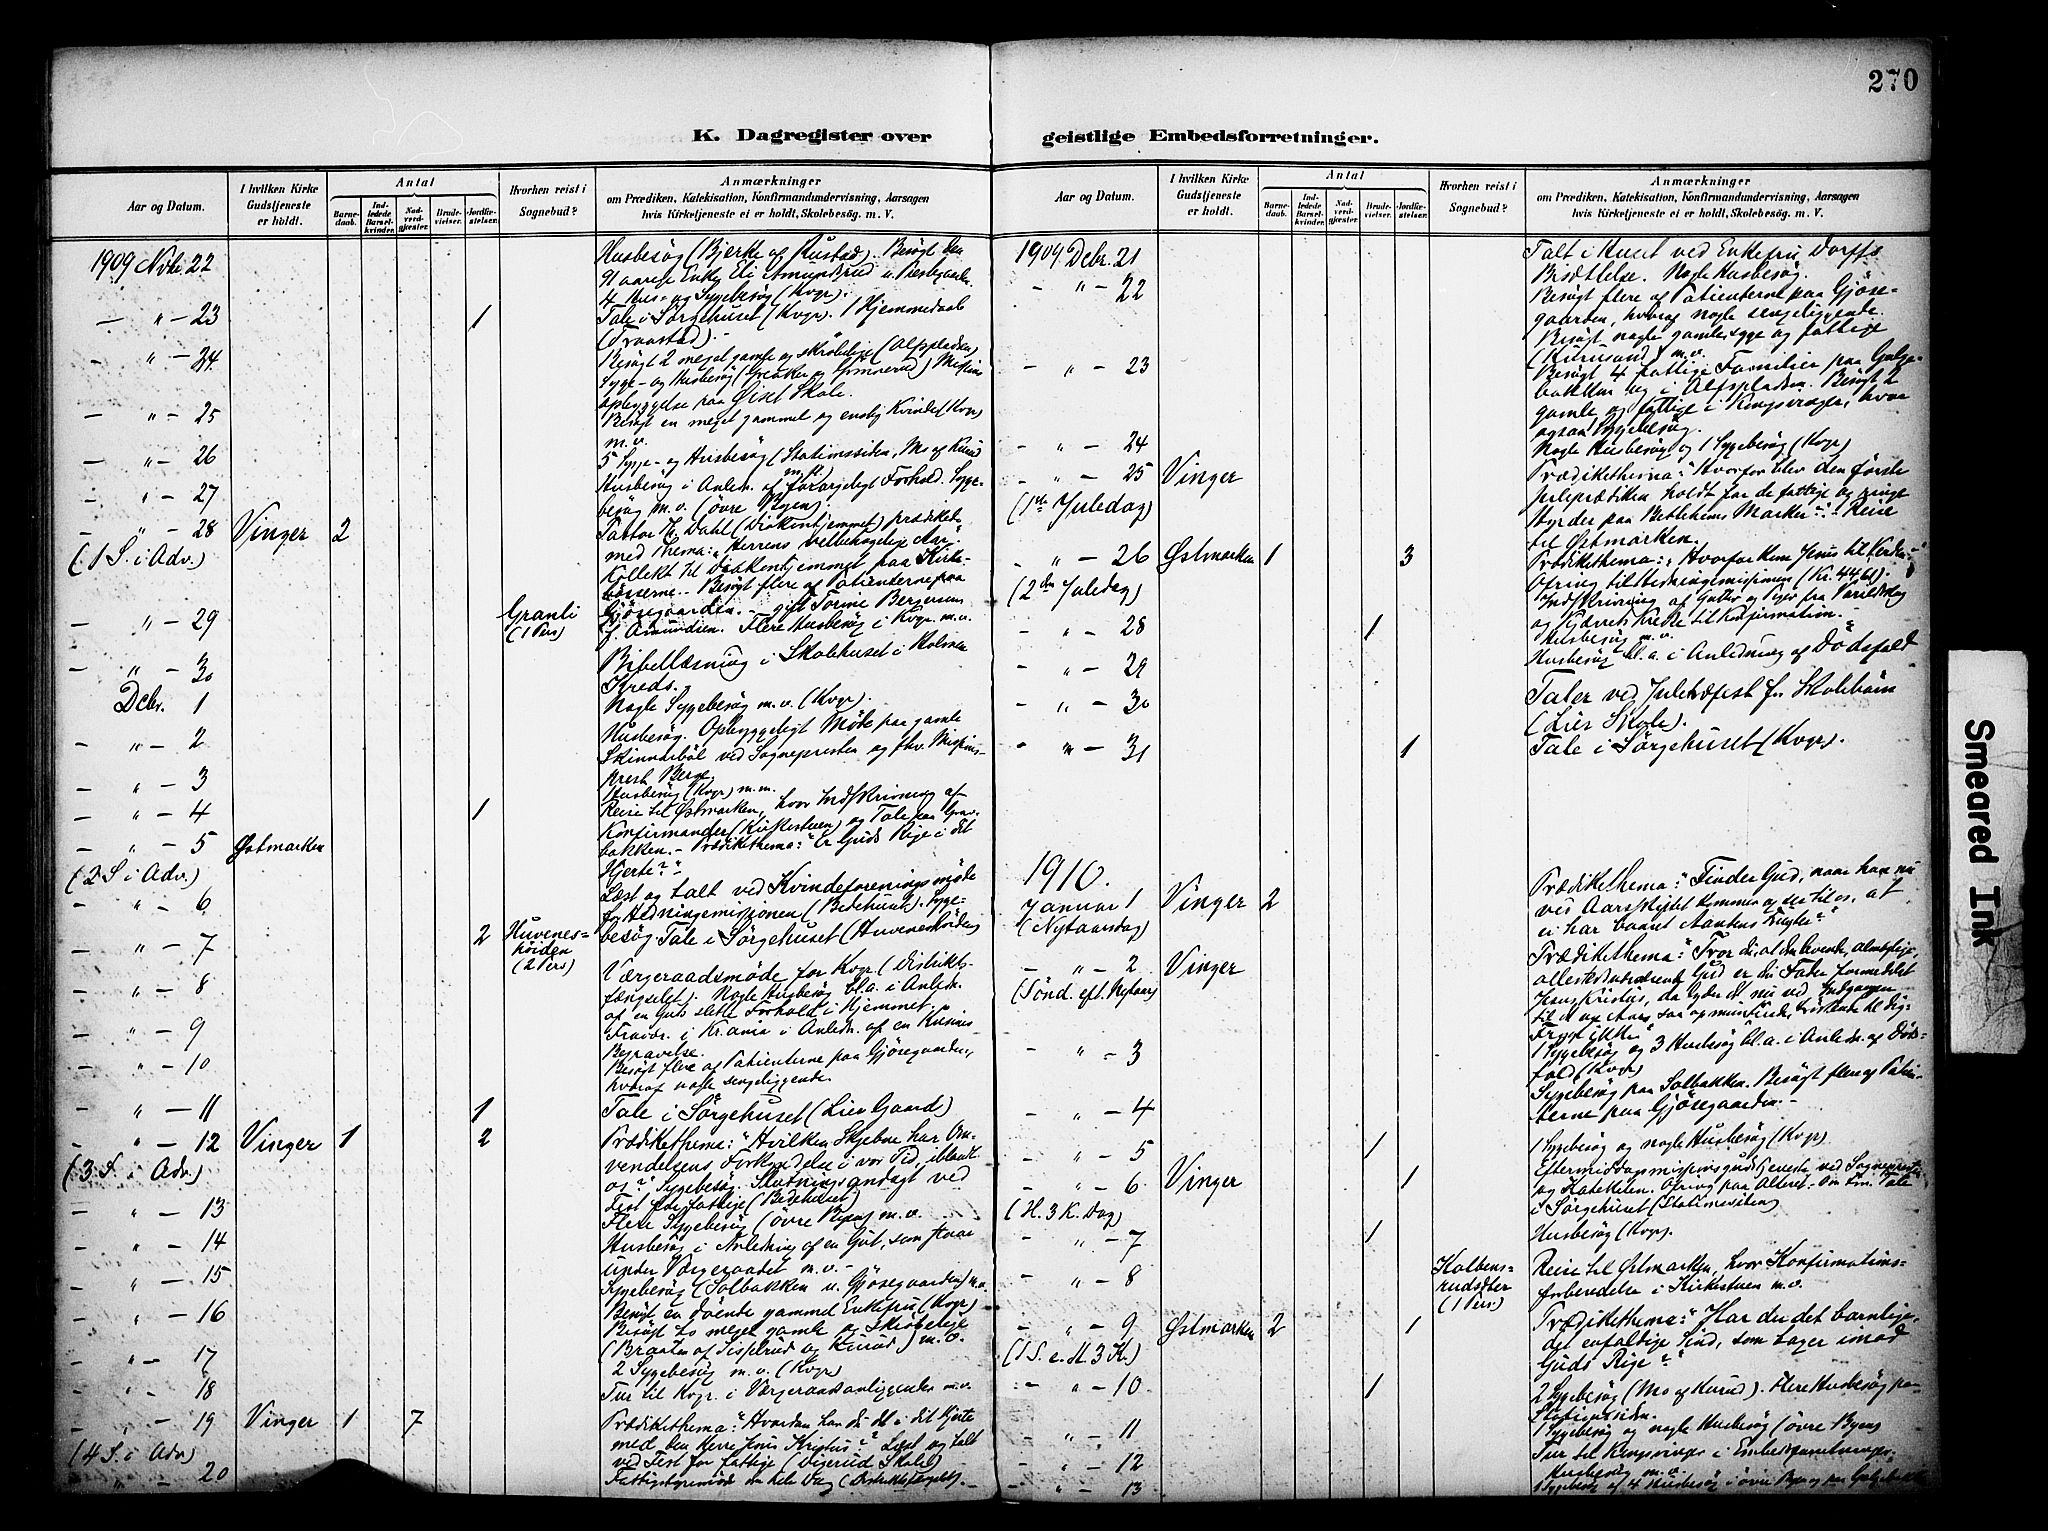 270
K. Dagregister over geistlige Embedsforretninger.
Aar og Datum.
I hvilken Kirke Gudstjeneste er holdt.
Antal
Barnedaab.
Indledede Barselkvinder.
Nadverdgjæster.
Brudevielser.
Jordfæstelser.
Hvorhen reist i Sognebud?
Anmærkninger
om Prædiken, Katekisation, Konfirmandundervisning, Aarsagen
hvis Kirketjeneste ei er holdt, Skolebesøg. m. V.
1909 Nvbr. 22 Husbesøg (Bjerke og Rustad). Besøgt den
91 aarige Enke Eli Amundsrud
4 Hus- og Sygebesøg (Kvgr).
— " — 23 1 Tale i Sørgehuset (Kvgr). 1 Hjemmedaab
(Traastad).
— " — 24 Besøgt 2 meget gamle og skrøbelige (Alfpladsen)
Syge- og Husbesøg (Greaker og
opbyggelse paa Øiset Skole.
— " — 25 Besøgt en meget gammel og enslig Kvinde (Kvgr)
m.v.
— " — 26 5 Syge- og Husbesøg (Stationssiden, Mo og Kurud
m.fl.)
— " — 27 Husbesøg i Anledn. af forargeligt Forhold. Syge-
besøg m.v. (øvre Byen).
— " — 28 Vinger 2 Pastor H. Dahl (Diakonhjemmet) prædikede
(1 S. i Adv.) med Thema: "Herrens velbehagelige Aar.
Kollekt til Diakonhjemmet paa Kirke-
bøsserne. - Besøgt flere af Patienterne paa
— " — 29 Granli Gjøsegaarden. - gift Torine Bergersen
(1 Pers) f. Amundsen. Flere Husbesøg i Kvgr. m.v.
— " — 30 Bibellæsning i Skolehuset i Holmen
Kreds.
Debr. 1 Nogle Sygebesøg m.v. (Kvgr).
— " — 2 Husbesøg. Opbyggeligt Møde paa gamle
Skinnarbøl ved Sognepresten og fhv. Missions-
prest Berge.
— " — 3 Husbesøg (Kvgr) m.m.
— " — 4 1 Reise til Østmarken, hvor Indskrivning af
Konfirmander (Kirkestuen) og Tale paa Grav-
— " — 5 Østmarken bakken. - Prædikethema: "Er Guds Rige i dit
(2 S i Adv.) Hjerte?"
— " — 6 Læst og talt ved Kvindeforeningsmøde
for Hedningemissionen (Bedehuset). Syge-
— " — 7 2 Huvenes- besøg Tale i Sørgehuset (Huveneshøiden)
høiden
(2 Pers)
— " — 8 Værgeraadsmøde for Kvgr (Distrikts-
fængselet). Nogle Husbesøg bl.a. i Anledn.
af en Guts slette Forhold i Hjemmet.
— " — 9 Fravær. i Kr.ania i Anledn. af en Kusines
Begravelse.
— " — 10 Besøgt flere af Patienterne paa Gjøsegaarden,
hvoraf nogle sengeliggende.
— " — 11 1 Tale i Sørgehuset (Lier Gaard)
— " — 12 Vinger 1 2 Prædikethema: "Hvilken Skjebne har Om-
(3 S. i Adv.) vendelsens Forkyndelse i vor Tid, iblandt
os?" Sygebesøg. Slutningsandagt ved
Fest for fattige (Bedehuset)
— " — 13 Flere Sygebesøg (øvre Byen) m.v.
— " — 14 Husbesøg i Anledning af en Gut, som staar
under Værgeraadet m.v. -
— " — 15 Sygebesøg (Solbakken u. Gjøsegaarden) m.v.
— " — 16 Besøgt en døende gammel Enkefru (Kvgr)
Besøgt to meget gamle og skrøbelige
(Braaten af Tisperud og Kurud) m.v.
— " — 17 2 Sygebesøg m.v. (Kvgr)
— " — 18 Tur til Kvgr. i Værgeraadsanliggender m.v.
— " — 19 Vinger 1 7 Prædikethema: "Hvordan har du det i dit Hjerte
(4 S. i Adv) med den Herre Jesus Kristus?" Læst og talt
ved Fest for fattige (Digerud Skole)
— " — 20 Fattigstyremøde den hele Dag (Distriktsfængslet). -
Aar og Datum.
I hvilken Kirke Gudstjeneste er holdt.
Antal
Barnedaab.
Indledede Barselkvinder.
Nadverdgjæster.
Brudevielser.
Jordfæstelser.
Hvorhen reist i Sognebud?
Anmærkninger
om Prædiken, Katekisation, Konfirmandundervisning, Aarsagen
hvis Kirketjeneste ei er holdt, Skolebesøg. m. V.
1909 Debr. 21 Talt i Huset ved Enkefru Dorffs
Bisættelse. Nogle Husbesøg.
— " — 22 Besøgt flere af Patienterne paa Gjøse-
gaarden, hvoraf nogle sengeliggende.
Besøgt nogle gamle, syge og fattige
m.v.
— " — 23 Besøgt 4 fattige Familier paa Galge-
bakken og i Alfpladsen. Besøgt 2
gamle og fattige i Kongsvinger, hvor
ogsaa Sygebesøg.
— " — 24 Nogle Husbesøg og 1 Sygebesøg (Kvgr)
— " — 25 Vinger Prædikethema: "Hvorfor blev den første
(1ste Juledag) Juleprædiken holdt for de fattige og ringe
Hyrder paa Betlehems Marker?" - Reise
til Østmarken.
— " — 26 Østmarken 1 3 Prædikethema: "Hvorfor kom Jesus til Verden?"
(2den Juledag) Ofring til Hedningemissionen (Kr. 44,61).
Indskrivning af Gutter og Piger fra Varildskog
og Kjerrets Kreds til Konfirmation.
— " — 28 1 Husbesøg m.v.
— " — 29 Husbesøg bl.a. i Anledning af Dødsfald
— " — 30 Taler ved Juletræfest f. Skolebørn
(Lier Skole).
— " — 31 1 Tale i Sørgehuset (Kvgr).
1910.
Januar 1 Vinger 2 Prædikethema: "Finder Gud, naar han nu
(Nytaarsdag) ved Aarsskiftet kommer og ser til os, at
vi har baaret Aandens Frugter?"
— " — 2 Vinger Prædikethema: "Tror du, at den levende, almægtige,
(Sønd. eft. Nytaar) allestedsnærværende Gud er din Fader formedelst
Jesus Kristus, da lyder det nu ved Indgangen
til det nye Aar saa opmuntrende, trøstende til dig:
Frygt ikke!"
— " — 3 1 Sygebesøg og 3 Husbesøg bl.a. i Anledn. af Døds-
fald (Kvgr)
— " — 4 Sygebesøg paa Solbakken. Besøgt flere af Patien-
terne paa Gjøsegaarden. -
— " — 5 1 1 Sygebesøg og nogle Husbesøg (Kvgr)
— " — 6 Vinger 1 Eftermiddagsmissionsgudstjeneste ved Sognepresten
(H. 3 K. Dag) og Kateketen. Ofring paa Alteret. Tale
i Sørgehuset (Stationssiden)
— " — 7 1 Husbesøg (Kvgr).
— " — 8 Kalbens- Reise til Østmarken, hvor Konfirmations-
rudsæter forberedelse i Kirkestuen m.v.
(1 Pers.)
— " — 9 Østmarken 2 1 Prædikethema: "Har du det barnlige,
(1 S. e. H. 3 K.) det enfoldige Sind, som tager imod
Guds Rige?"
— " — 10 1 2 Sygebesøg (Mo og Kurud). Flere Husbesøg paa
Stationssiden.
— " — 11 1 Sygebesøg og nogle Husbesøg (øvre Byen)
— " — 12 Tur til Kongsvinger i Embedsanledninger.
Husbesøg m.v.
— " — 13 1 Sygebesøg og 4 Husbesøg i øvre Byen og paa Galgebakken
Smeared Ink